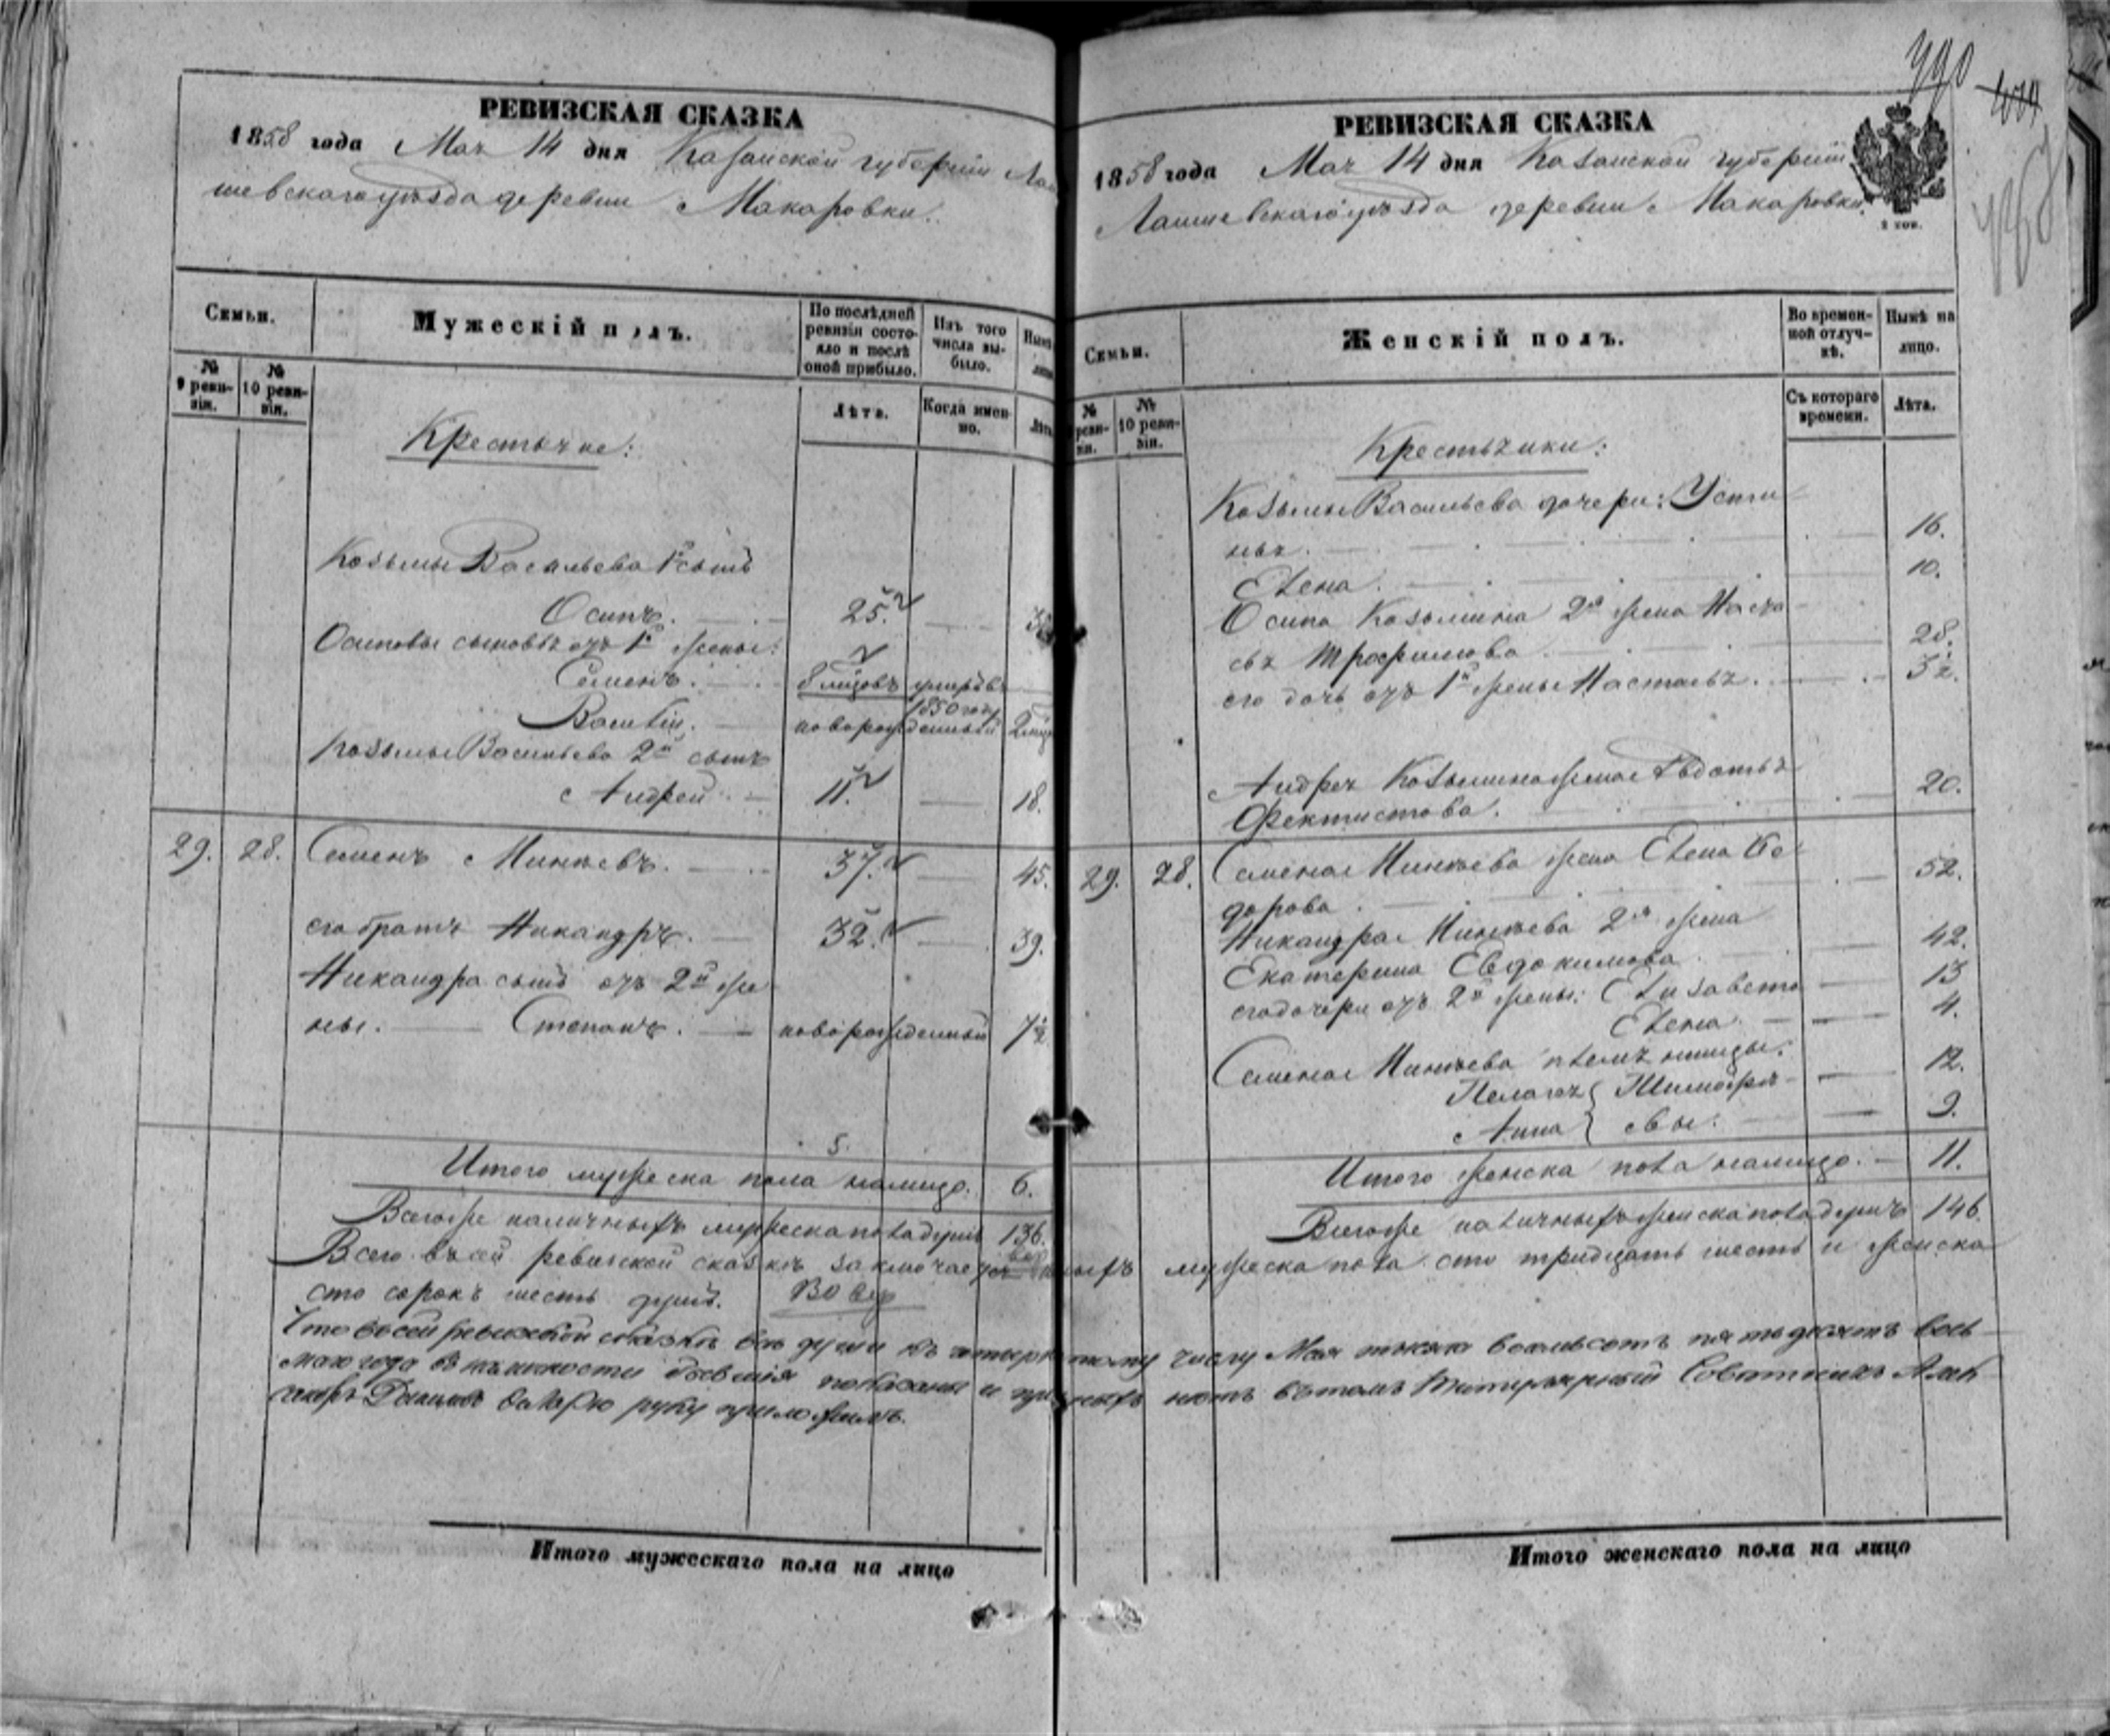 РЕВИЗСКАЯ СКАЗКА
1858 года Мая 14 дня Казанской губернии Лаи
шевского уѣзда деревни Макаровки.
Семьи.
Мужескій полъ.
По послѣдней ревизіи состояло и послѣ оной прибыло.
Изъ того числа выбыло.
Нынѣ
№ 9 ревизіи.
№ 10 ревизіи.
Лѣта.
Когда именно.
Лѣта
Крестьяне:
Козьмы Васильева 1й сынъ
Осипъ. 25.
Осиповы сыновья отъ 1й жены:
Семенъ. 8 мѣцовъ умеръ въ
1850 году
Василій. новорожденный 2 мѣц
Козьмы Васильева 2й сынъ
Андрей 11. 18.
29. 28. Семенъ Минѣевъ. 37. 45.
его братъ Никандръ. 32. 39.
Никандра сынъ отъ 2й же
ны. Степанъ. новорожденный 7½
5.
Итого мужеска пола налицо. 6.
Всего же наличныхъ мужеска пола душъ 136.
Всего въ сей ревизской сказкѣ заключается
ныхъ мужеска пола сто тридцать шесть и женска
сто сорокъ шесть душъ.
Что въ сей ревизской сказкѣ всѣ души къ четырна
тому числу Мая тысяча восемьсотъ пятьдесятъ вось
маго года въ наличности бывшія показаны и про
ныхъ нѣтъ въ томъ Титулярный Совѣтникъ
руку приложилъ.
Итого мужескаго пола на лицо
790
РЕВИЗСКАЯ СКАЗКА
1858 года Мая 14 дня Казанской губерніи
Лаишевскаго уѣзда деревни Макаровки.
Семьи.
Женскій полъ.
Во временной отлучкѣ.
Нынѣ на лицо.
№ ревизіи.
№ 10 ревизіи.
Съ котораго времени.
Лѣта.
Крестьянки:
Козьмы Васильева дочери: Усти
нья. 16.
Елена. 10.
Осипа Козьмина 2я жена Наста
сья Трофимова. 28.
его дочь отъ 1й жены Настасья.
Андрея Козьмина жена Авдотья
Фектистова. 20.
29. 28. Семена Минѣева жена Елена Ѳе
дорова. 52.
Никандра Минѣева 2я жена
Екатерина Евдокимова. 42.
его дочери отъ 2й жены: Елизавета 13
Елена. 4.
Семена Минѣева племянницы:
Пелагея Тимофѣе 12.
Анна евы. 9.
Итого женска пола налицо. 11.
Всего же наличныхъ женска пола душъ 146.
Итого женскаго пола на лицо